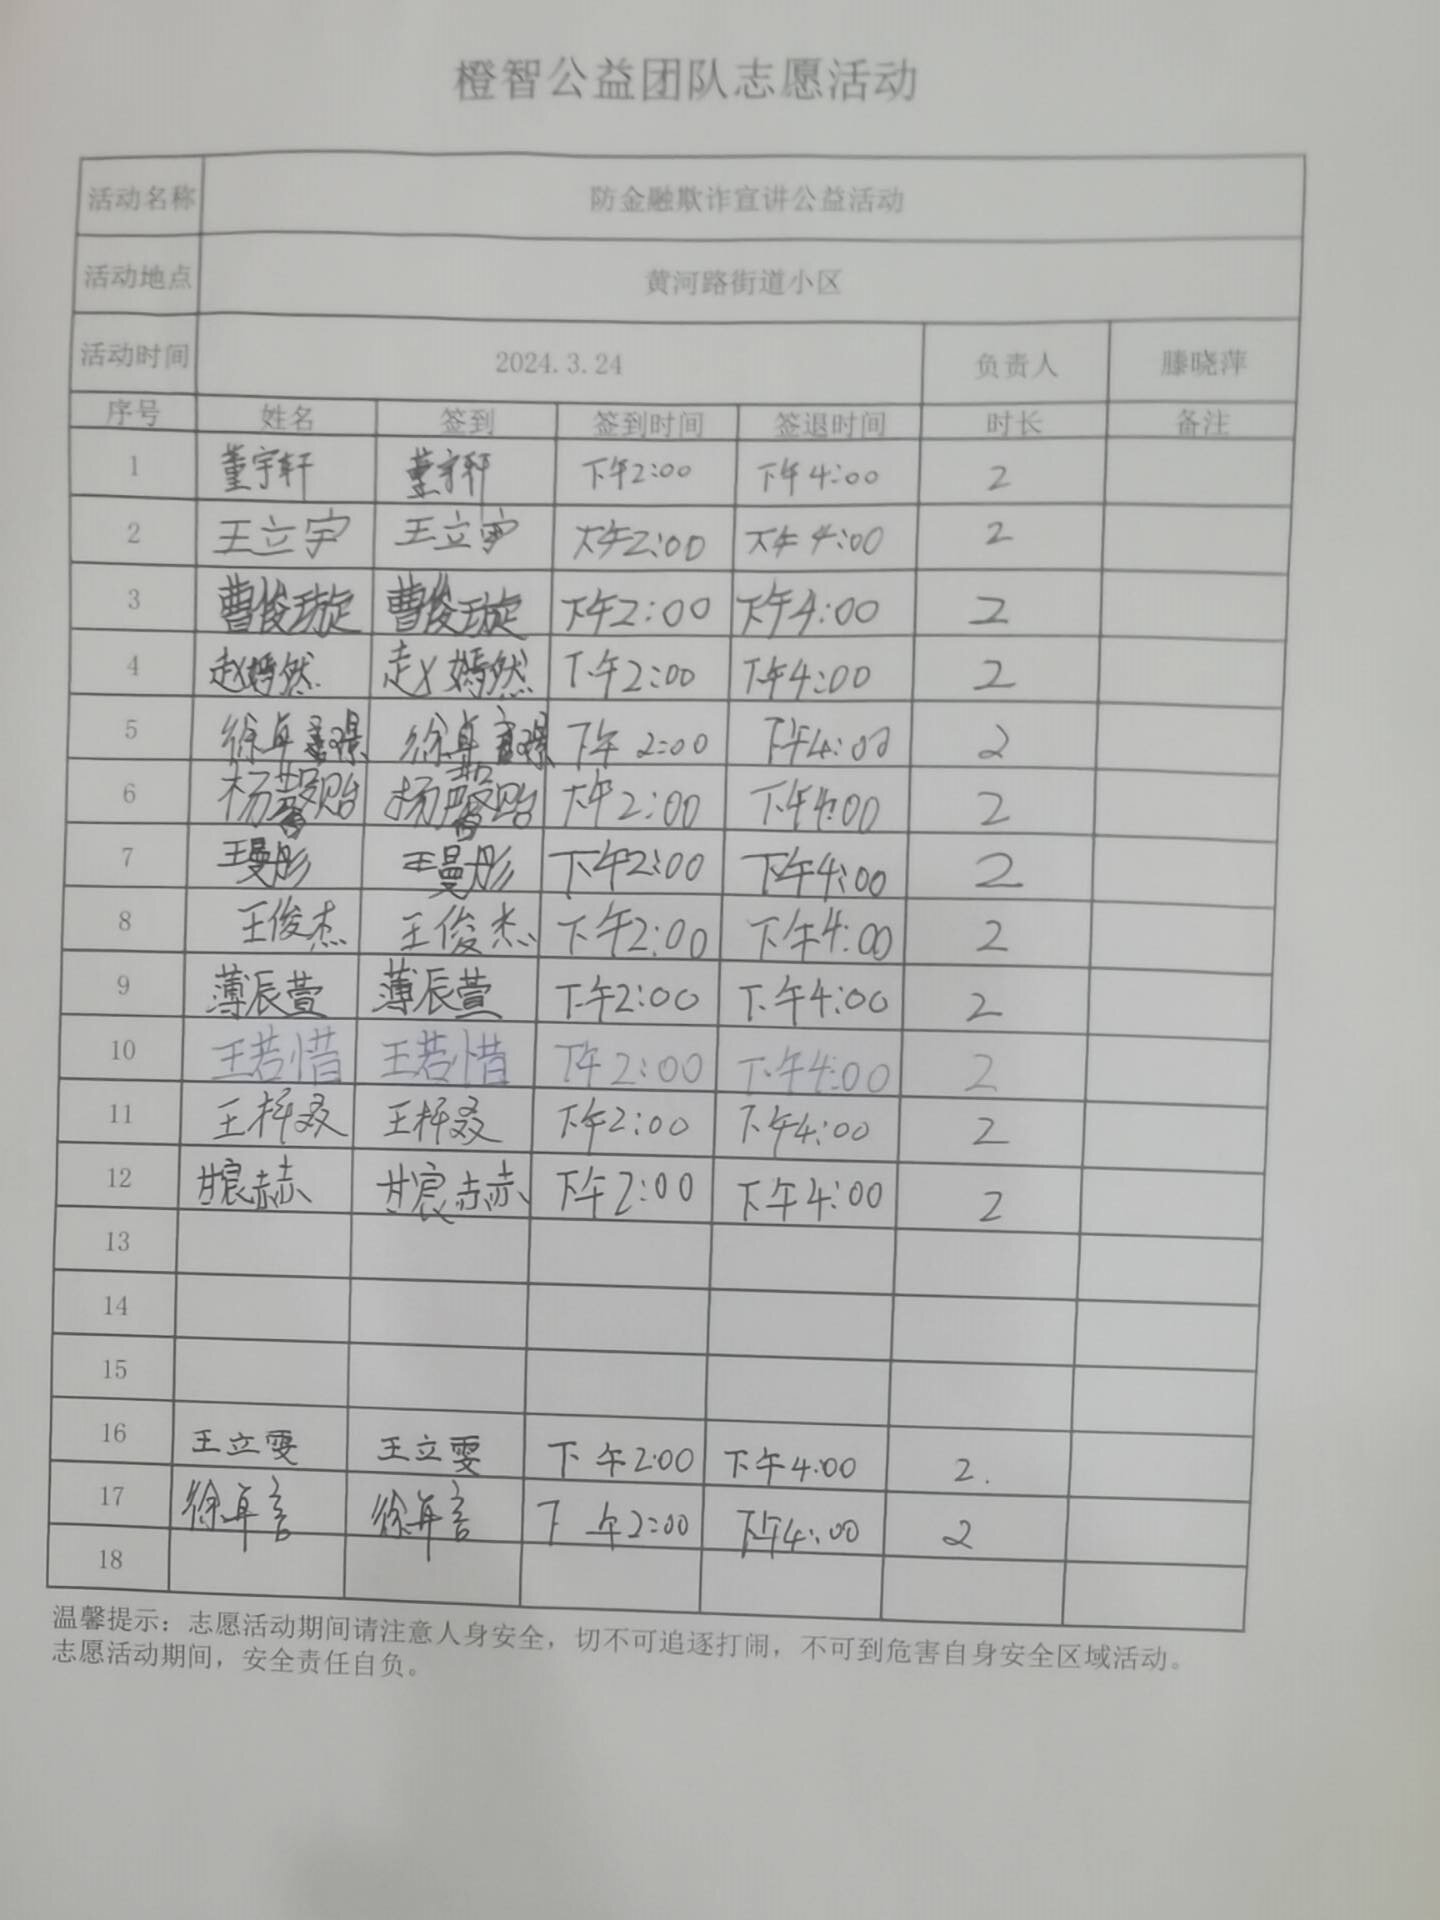 橙智公益团队志愿活动
活动名称 防金融欺诈宣讲公益活动
活动地点 黄河路街道小区
活动时间 2024.3.24 负责人 滕晓萍
序号 姓名 签到 签到时间 签退时间 时长 备注
1 董宇轩 董宇轩 下午2:00 下午4:00 2
2 王立宇 王立 下午2:00 下午4:00 2
3 曹俊璇 曹俊璇 下午2:00 下午4:00 2
4 赵嫣然 赵嫣然 下午2:00 下午4:00 2
5 徐卓 徐卓 下午2:00 下午4:00 2
6 杨馨贻 杨馨贻 下午2:00 下午4:00 2
7 王曼彤 王曼彤 下午2:00 下午4:00 2
8 王俊杰 王俊杰 下午2:00 下午4:00 2
9 薄辰萱 薄辰萱 下午2:00 下午4:00 2
10 王若惜 王若惜 下午2:00 下午4:00 2
11 王梓 王梓 下午2:00 下午4:00 2
12 甘宸赫 甘宸赫 下午2:00 下午4:00 2
13
14
15
16 王立雯 王立雯 下午2:00 下午4:00 2.
17 徐卓言 徐卓言 下午2:00 下午4:00 2
18
温馨提示：志愿活动期间请注意人身安全，切不可追逐打闹，不可到危害自身安全区域活动。
志愿活动期间，安全责任自负。